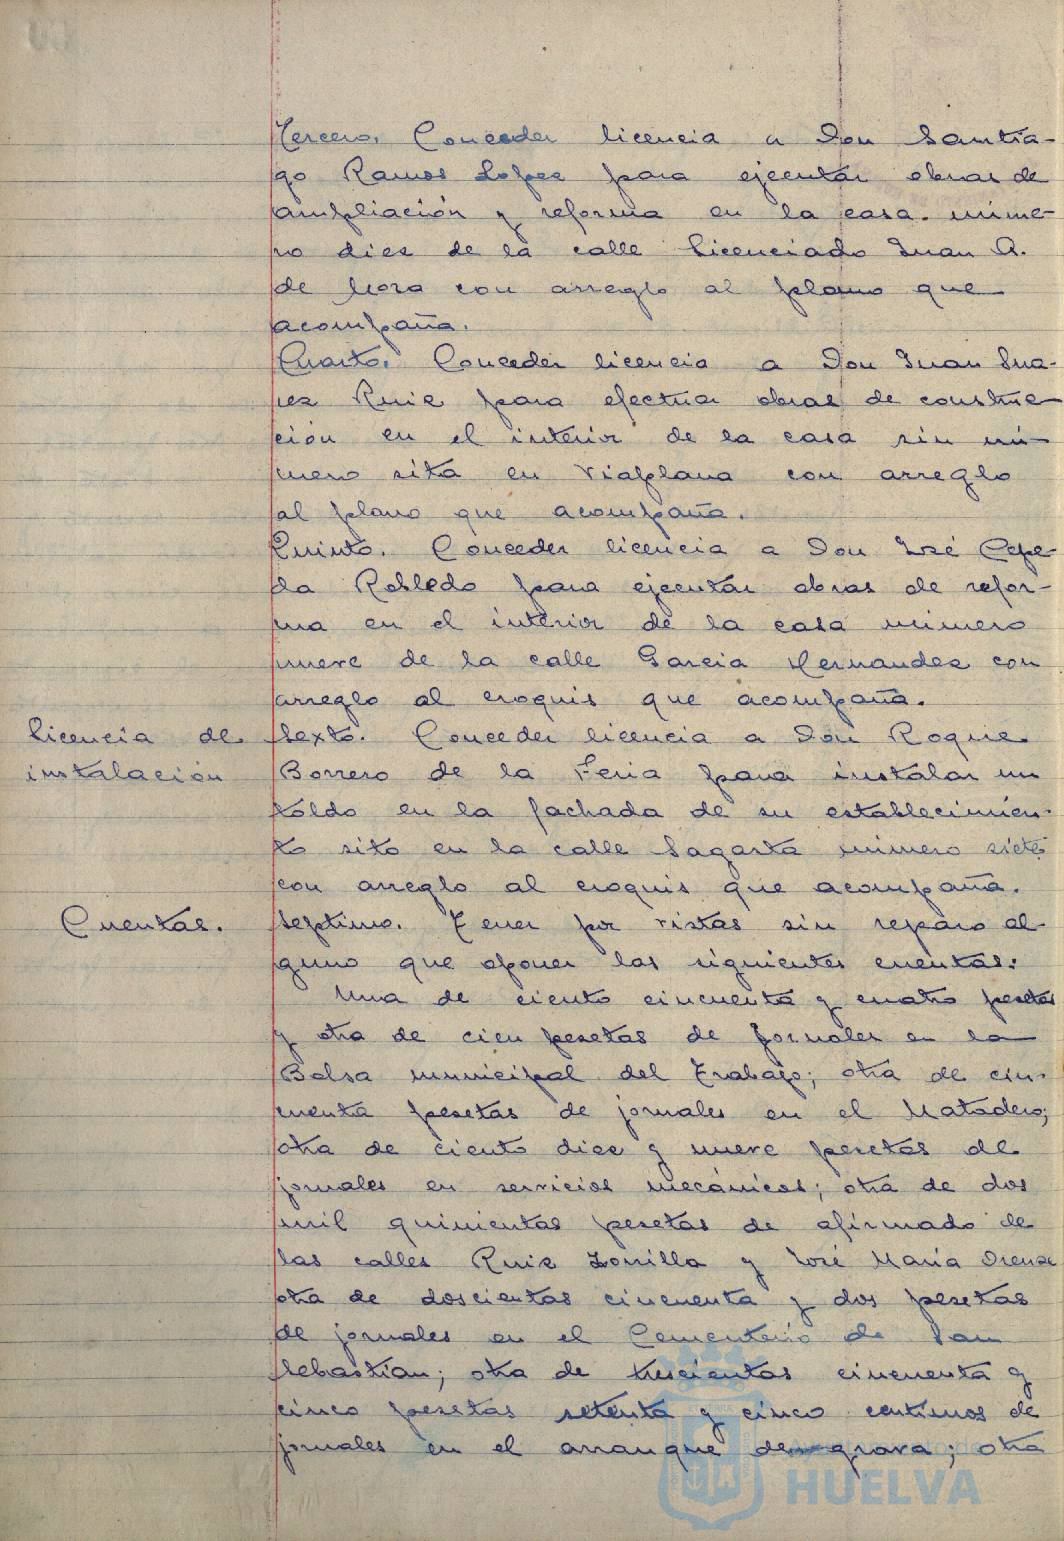 Tercero. Conceder licencia a Don Santia-
go Ramos Lopez para ejecutar obras de
ampliación y reforma en la casa. núme-
ro diez de la calle Licenciado Juan A.
de Mora con arreglo al plano que
acompaña.
Cuarto. Conceder licencia a Don Juan Sua-
rez Ruiz para efectuar obras de construc-
ción en el interior de la casa sin nú-
mero sita en Viaplana con arreglo
al plano que acompaña.
Quinto. Conceder licencia a Don José Cepe-
da Robledo para ejecutar obras de refor-
ma en el interior de la casa número
nueve de la calle Garcia Hernandez con
arreglo al croquis que acompaña.
Licencia de
instalación
Sexto. Conceder licencia a Don Roque
Borrero de la Feria para instalar un
toldo en la fachada de su establecimien-
to sito en la calle Sagasta número siete
con arreglo al croquis que acompaña.
Cuentas.
Septimo. Tener por vistas sin reparo al-
guno que oponer las siguientes cuentas:
Una de ciento cincuenta y cuatro pesetas
y otra de cien pesetas de jornales en la
Bolsa municipal del Trabajo; otra de cin-
cuenta pesetas de jornales en el Matadero;
otra de ciento diez y nueve pesetas de
jornales en servicios mecánicos; otra de dos
mil quinientas pesetas de afirmado de
las calles Ruiz Zorrilla y José María Orense
otra de doscientas cincuenta y dos pesetas
de jornales en el Cementerio de San
Sebastian; otra de trescientas cincuenta y
cinco pesetas setenta y cinco centimos de
jornales en el arranque de grava; otra
HUELVA